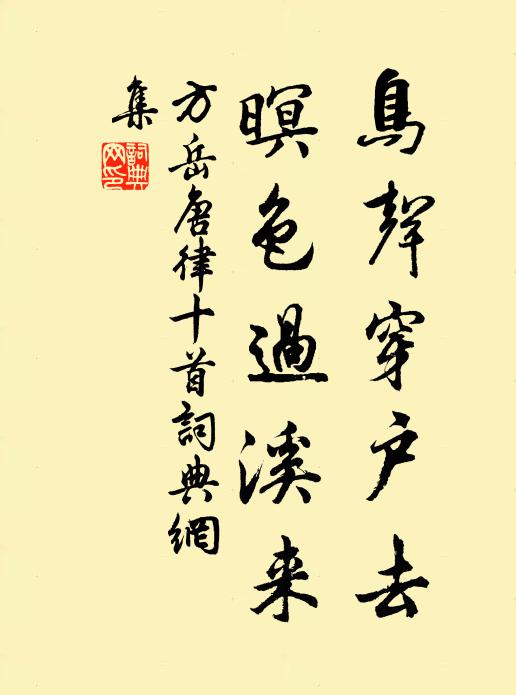 鳥聲穿户去
暝色過溪来
方岳唐律十首詞典網
集
詞典網印